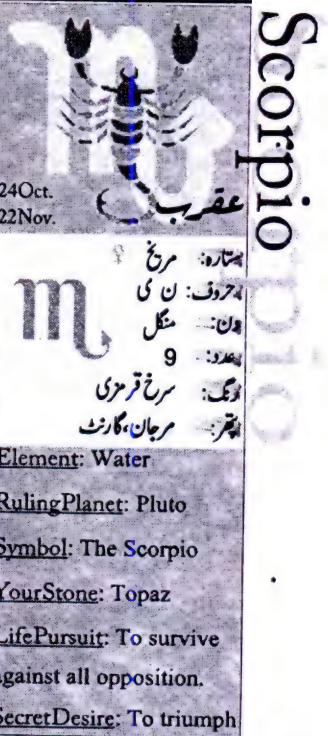 Scorpio
24Oct.
22Nov.
عقرب
ستارہ: مریخ
حروف: ن ی
دن: منگل
عدد: 9
رنگ: سرخ قرمزی
پتھر: مرجان، گارنٹ
Element: Water
RulingPlanet: Pluto
Symbol: The Scorpio
YourStone: Topaz
LifePursuit: To survive
against all opposition.
SecretDesire: To triumph